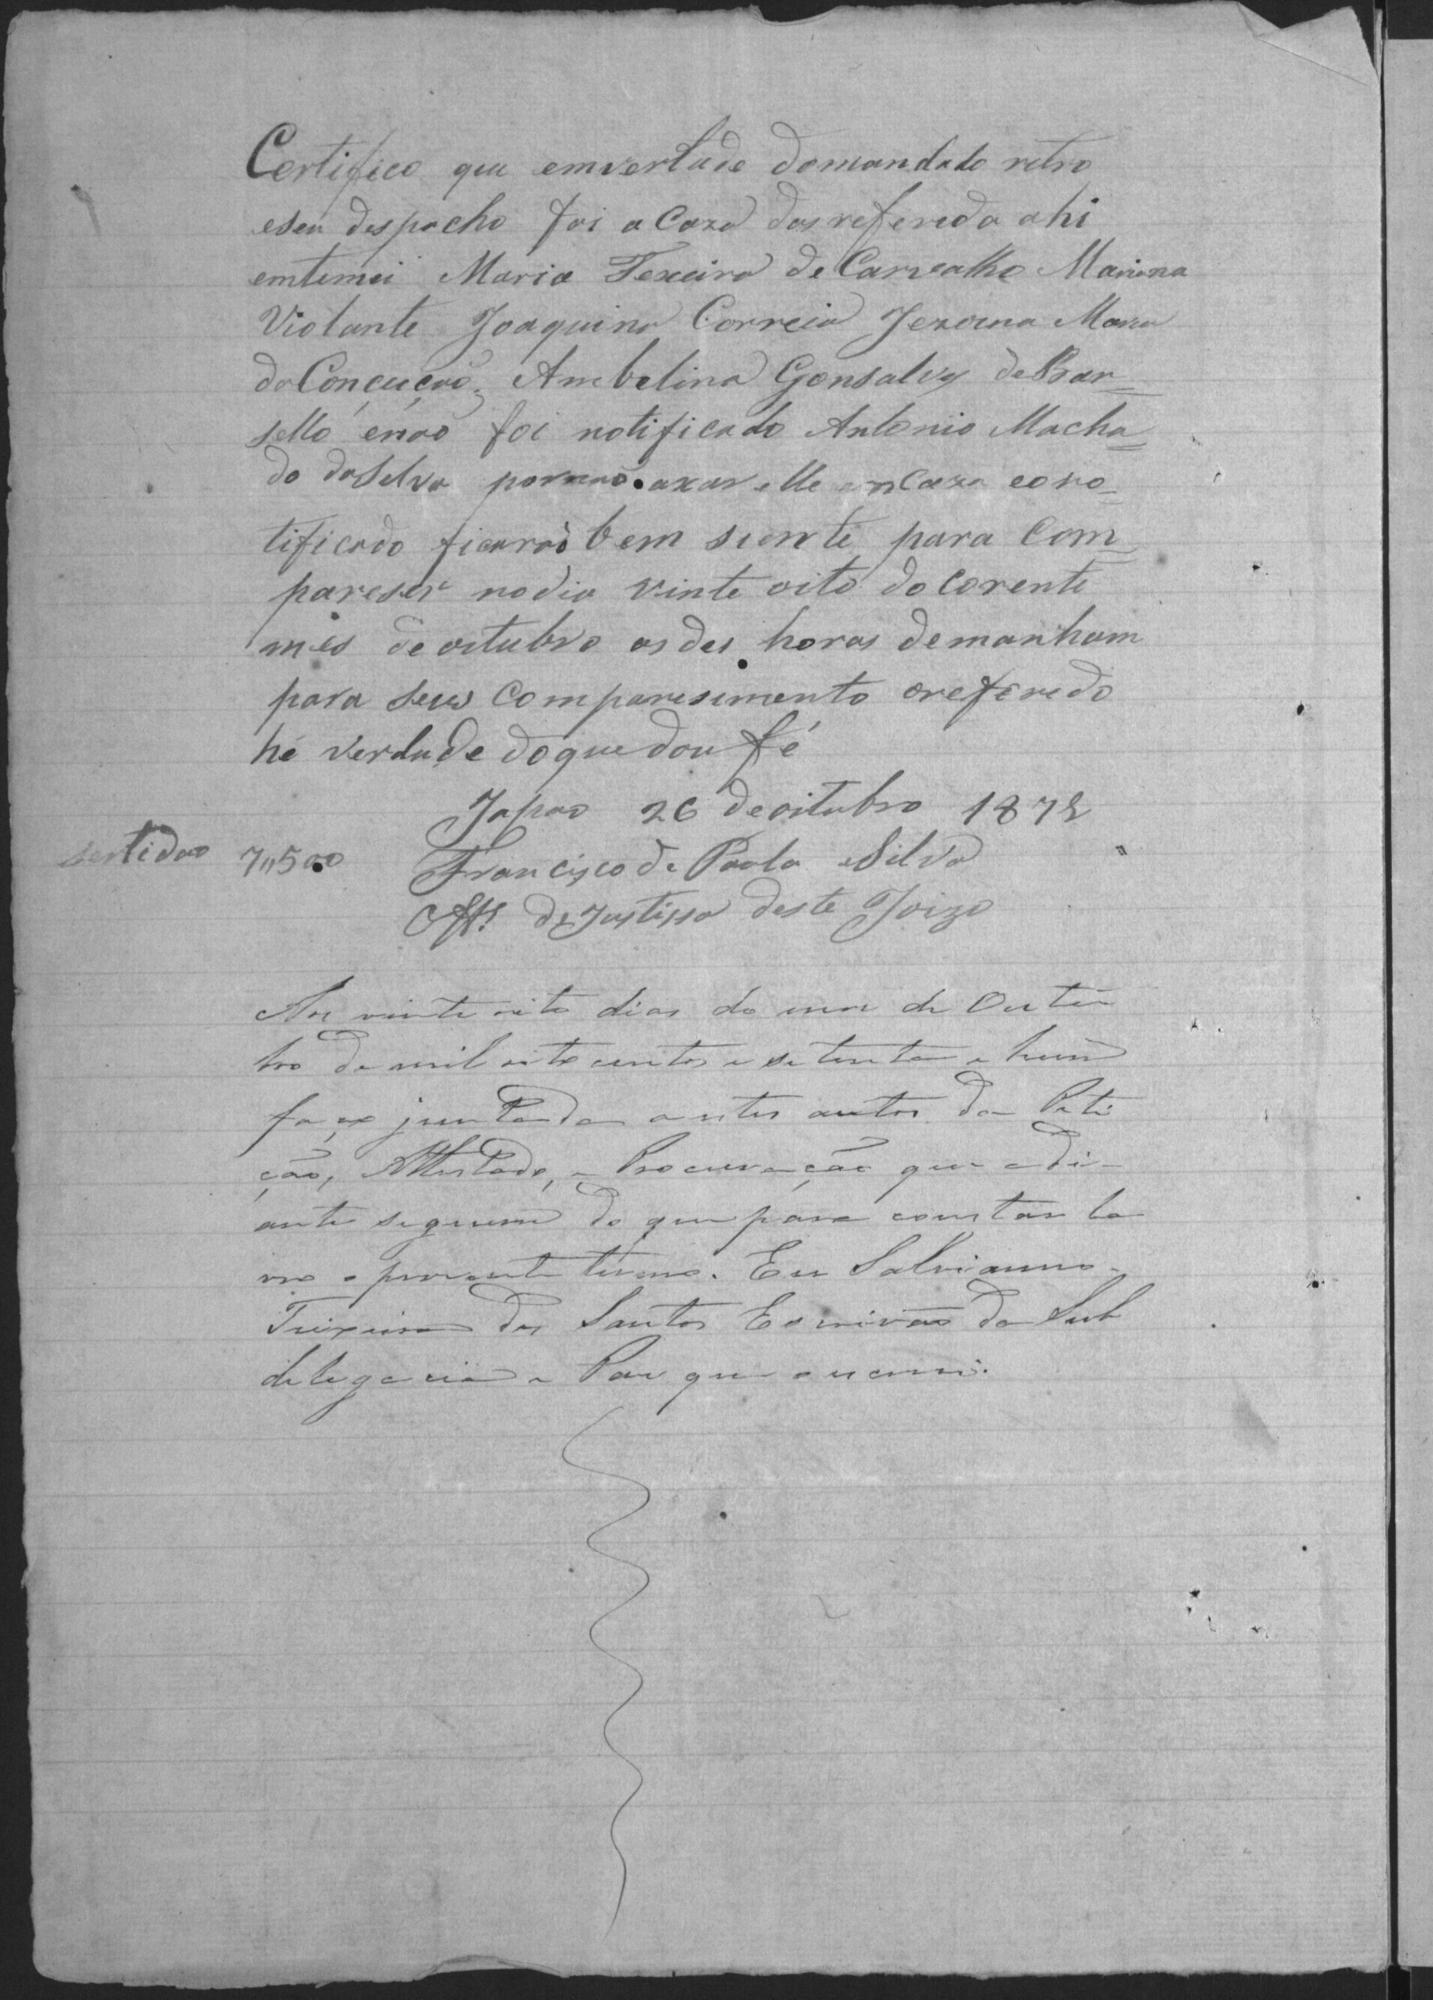 Certifico que emvertude domandado retro
eseu despacho foi a Caza das referida ahi
emtemei Maria Texeira de Carvalho Mariana
Violante Joaquina Correia Jeroma Maria
da Conceição, Ambelina Gonsalves de Bar=
sello, enão foi notificado Antonio Macha=
do da Selva por não axar elle em Caza eo no=
tificado ficarão bem siente para Com=
pareser nodia vinte oito do Corente
mes de oitubro as des horas demanham
para seus Comparesimento oreferido
hé verdade doque dou fé
Japão 26 de oitubro 187
sertidão 7"500 Francisco de Paula eSilva
Off. de Justissa deste Joizo
Aos vinte oito dias do mez de Outu
bro de mil oito centos e setenta e hum
faço juntada a estes autos da Peti
ção, Attestado, e Procuração que adi-
ante seguem do que para constar la
vro o presente termo. Eu Salvianno
Teixeira dos Santos Escrivão da Sub
delegacia e Paz que o escrevi.